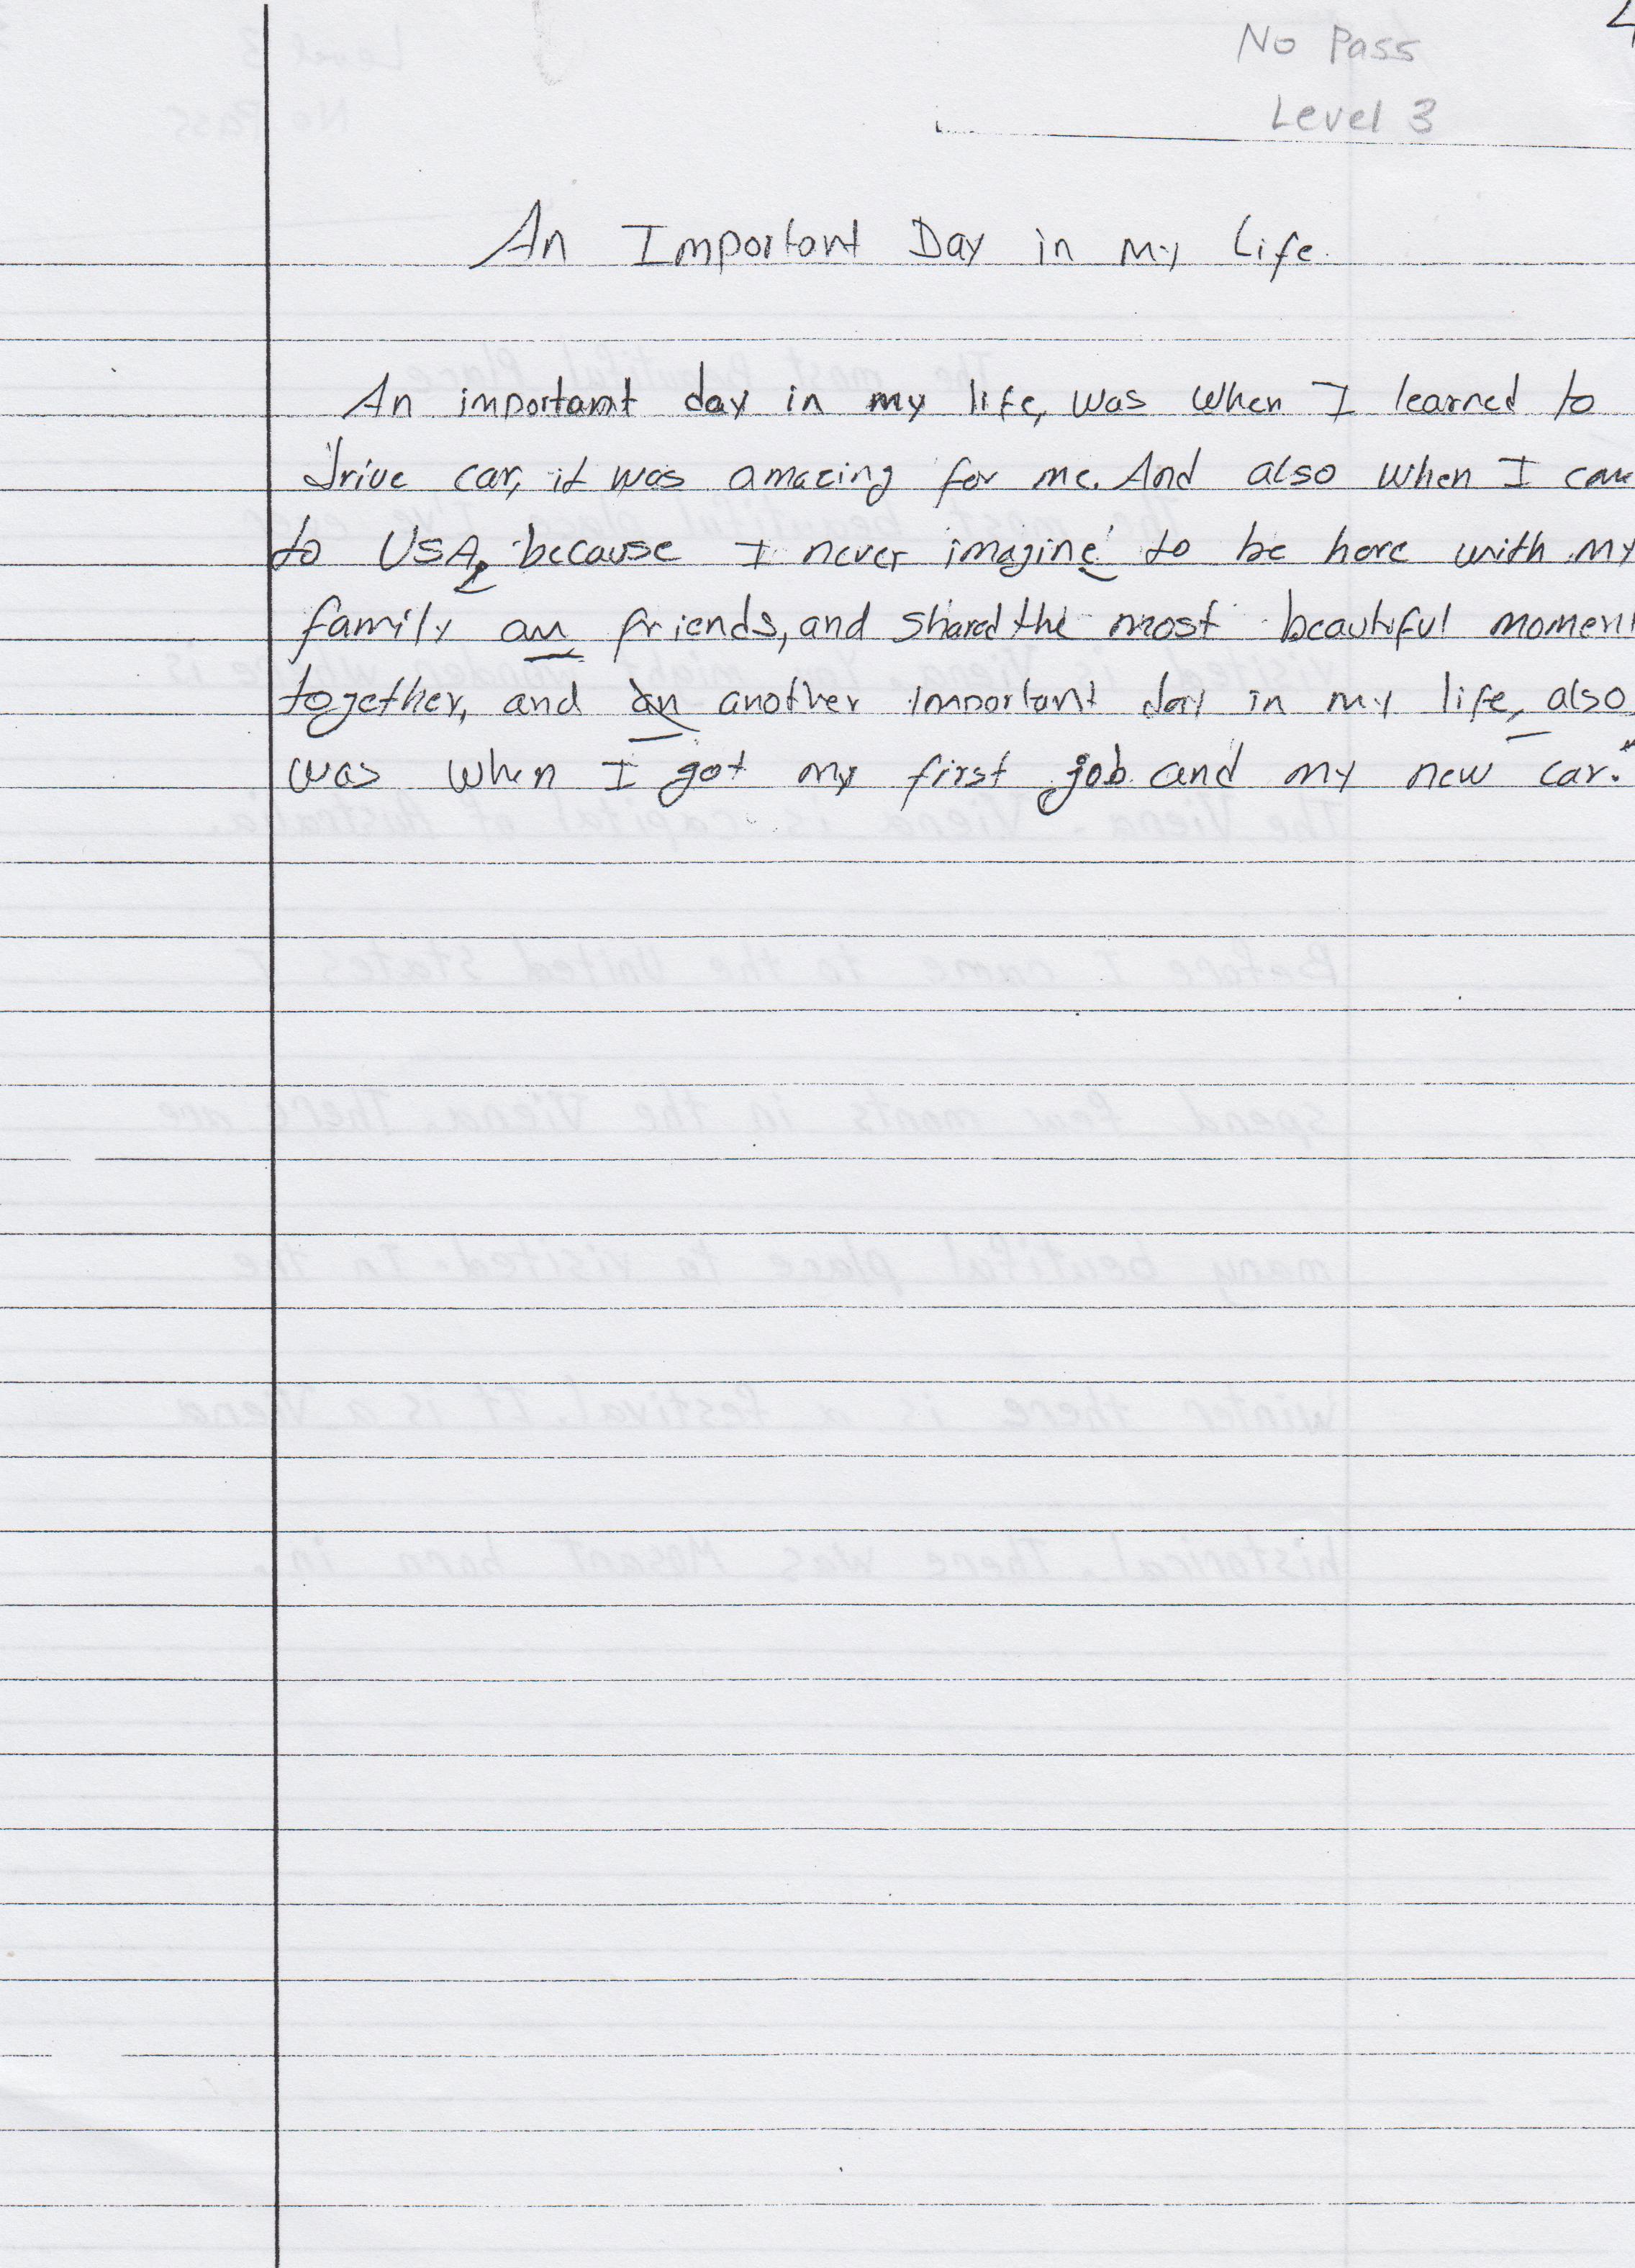 4
No Pass
Level 3
An Important Day in my Life.
An important day in my life, was when I learned to
drive car, it was amazing for me. And also when I
to USA, because I never imagine to be here with my
family an friends, and shared the most beautiful moment
together, and an another important day in my life, also
was when I got my first job and my new car.